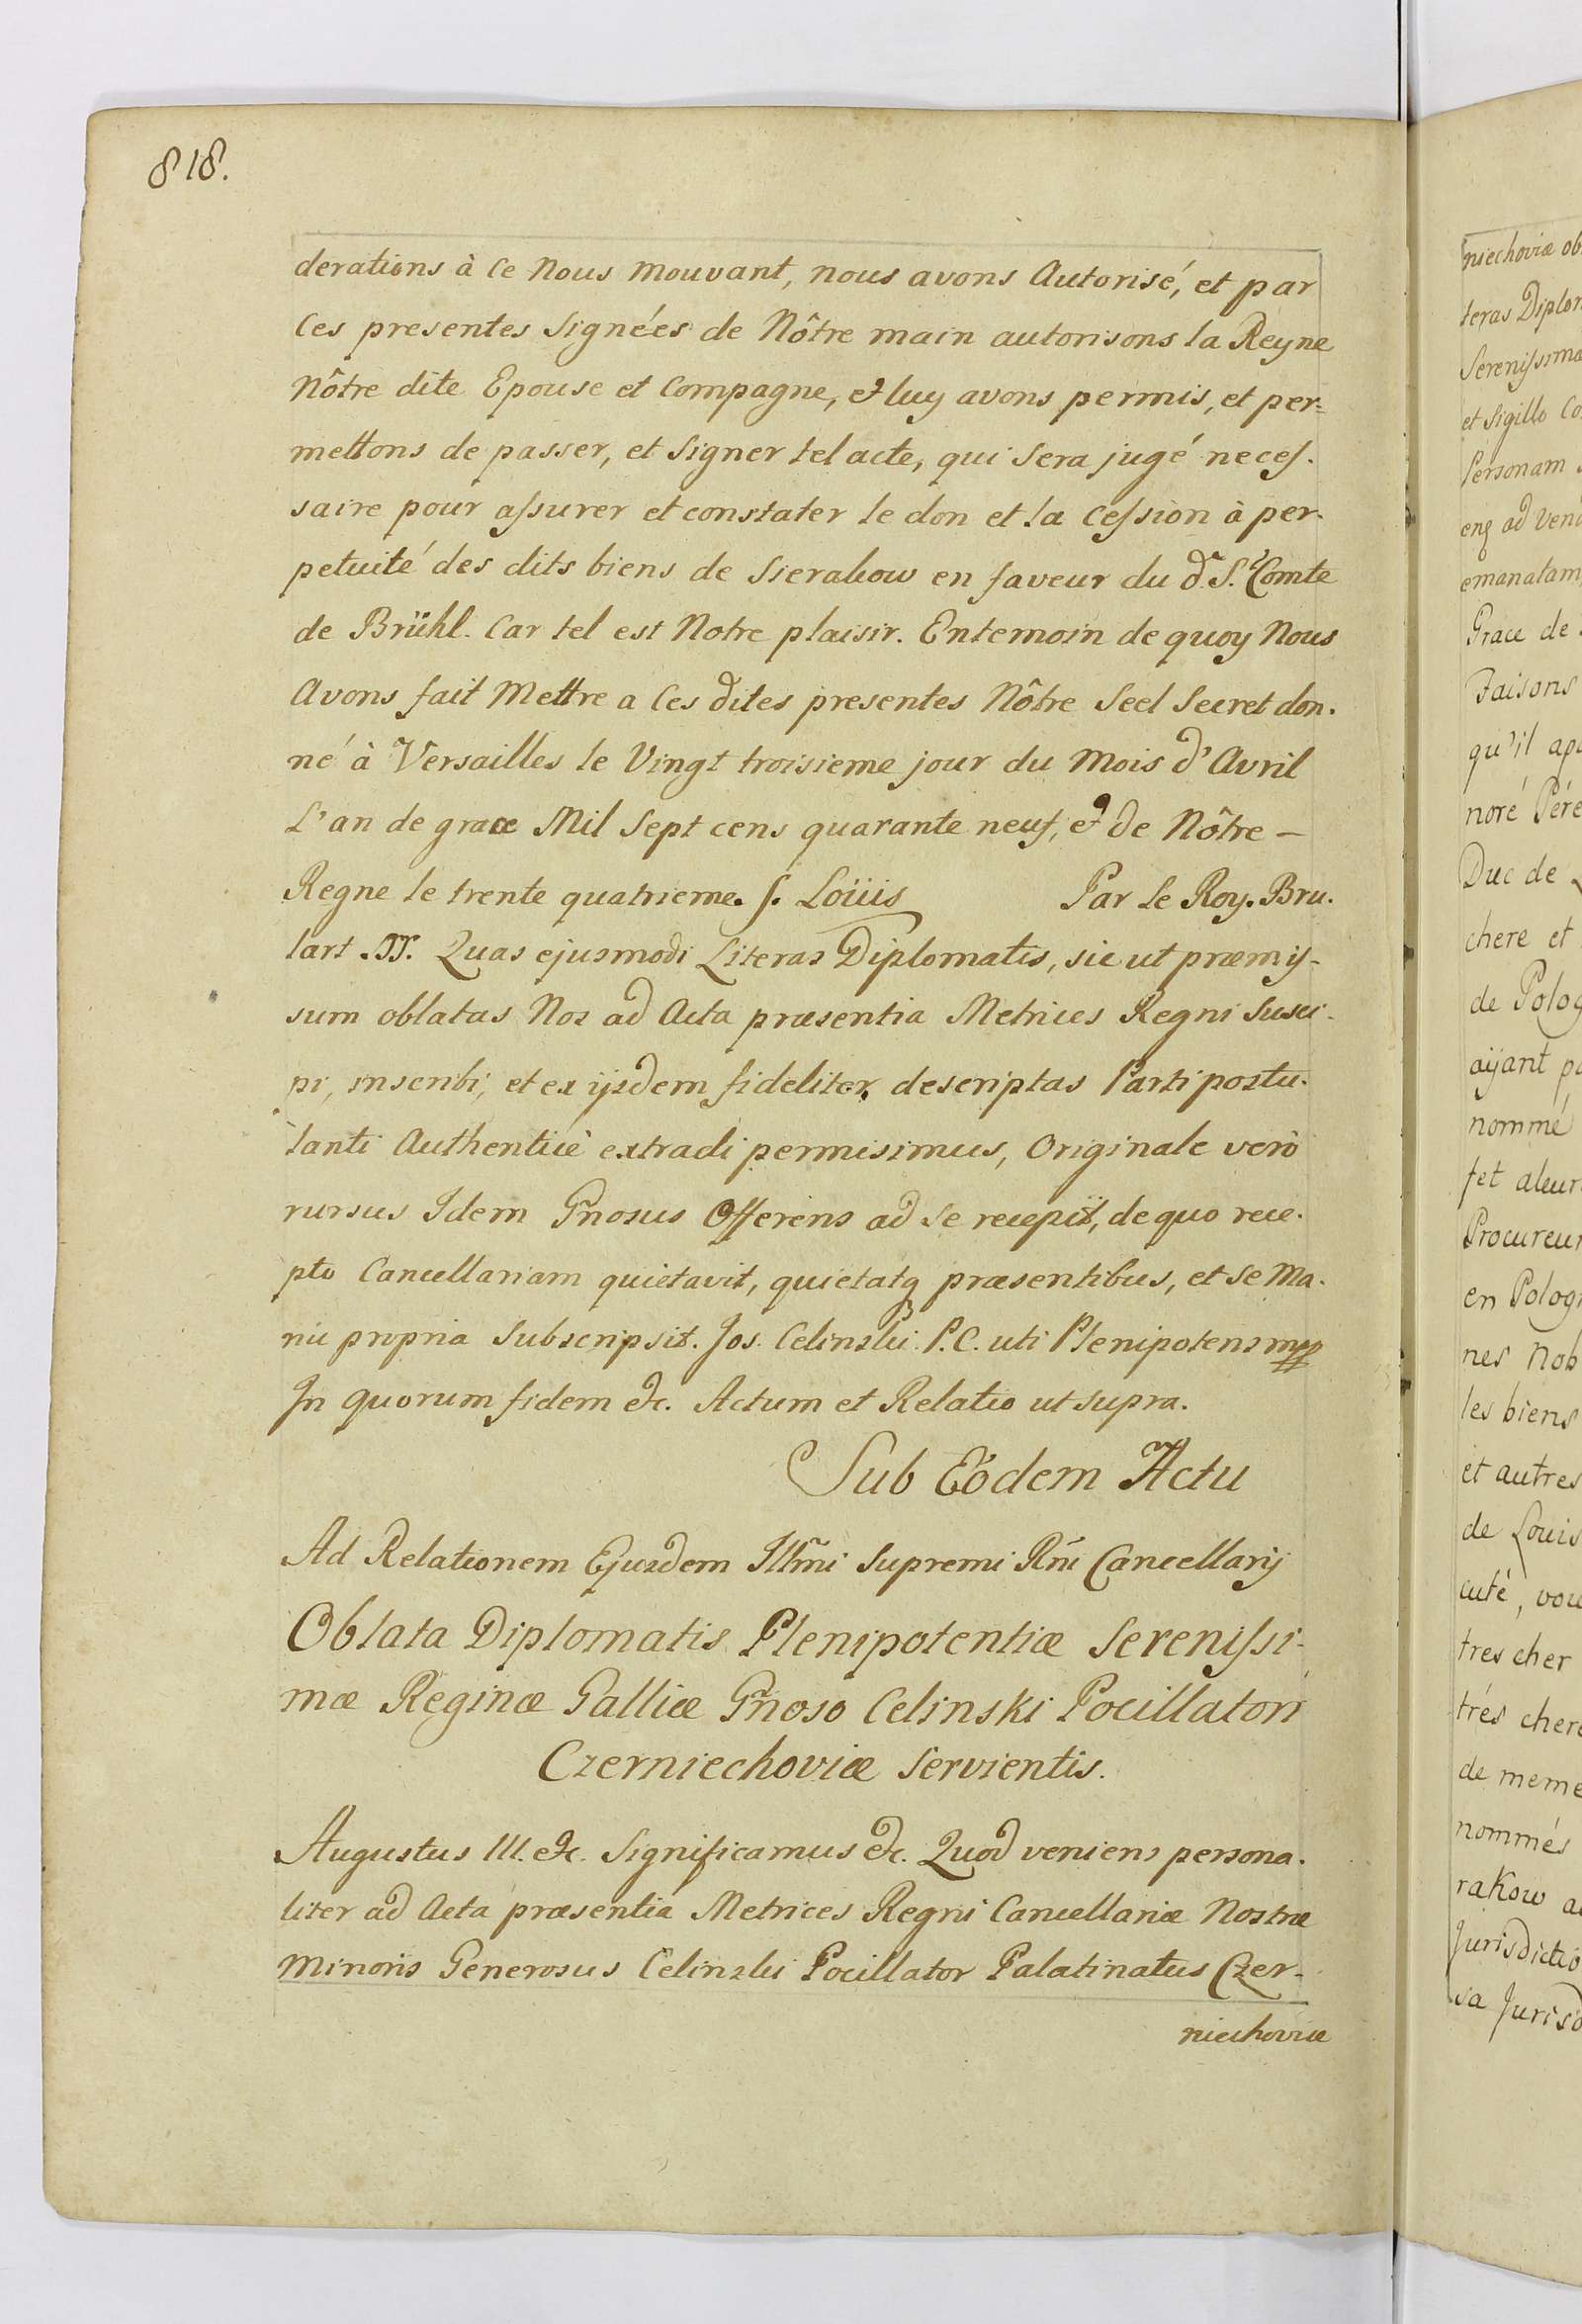 818.
derations à Ce Nous mouvant, nous avons Autorisé, et par
Ces presentes Signées de Nôtre main autorisons la Reyne
Nôtre dite Epouse et Compagne, et luy avons permis, et per=
mettons de passer, et Signer tel acte, qui Sera jugé neceſ-
saire pour aſsurer et constater le don et la Ceſsion à per-
petuité des dits biens de Sierakow en faveur du d. S.r Comte
de Brühl. Car tel est Notre plaisir. En temoin de quoy Nous
Avons fait Mettre a Ces dites presentes Nôtre Seel Secret don-
né à Versailles le Vingt troisieme jour du Mois d'Avril
L'an de grace Mil Sept cens quarante neuf, et de Nôtre –
Regne le trente quatrieme. S. Loüis Par Le Roy. Bru-
lart. Quas ejusmodi Literas Diplomatis, sic ut præmiſ-
sum oblatas Nos ad Acta præsentia Metrices Regni Susci-
pi, inscribi, et ex ijsdem fideliter descriptas Parti postu-
lanti Authenticè extradi permisimus, Originale verò
rursus Idem Gnosus Offerens ad Se recepit, de quo rece-
pto Cancellariam quietavit, quietatq præsentibus, et Se Ma-
nu propria Subscripsit. Jos. Celinski P.C. uti Plenipotens mpp
In quorum fidem &c. Actum et Relatio ut supra.
Sub Eodem Actu
Ad Relationem Ejusdem Illmi Supremi Rni Cancellarij
Oblata Diplomatis Plenipotentiæ Sereniſsi-
mæ Reginæ Galliæ Gnoso Celinski Pocillatori
Czerniechoviæ Servientis.
Augustus III. &c. Significamus &c. Quod veniens persona-
liter ad Acta præsentia Metrices Regni Cancellariæ Nostræ
Minoris Generosus Celinski Pocillator Palatinatus Czer-
niechoviæ
niechoviæ ob
teras Diplom
Sereniſsima
et Sigillo Co
Personam
enq ad Vend
emanatam
Grace de
Faisons
qu'il apa
noré Pére
Duc de
chere et
de Polog
aÿant pa
nommé
fet aleur
Procureur
en Polog
nes Nob
les biens
et autres
de Louis
cuté, vou
tres cher
trés chere
de meme
nommés
raKow a
Jurisdictio
sa Jurisd